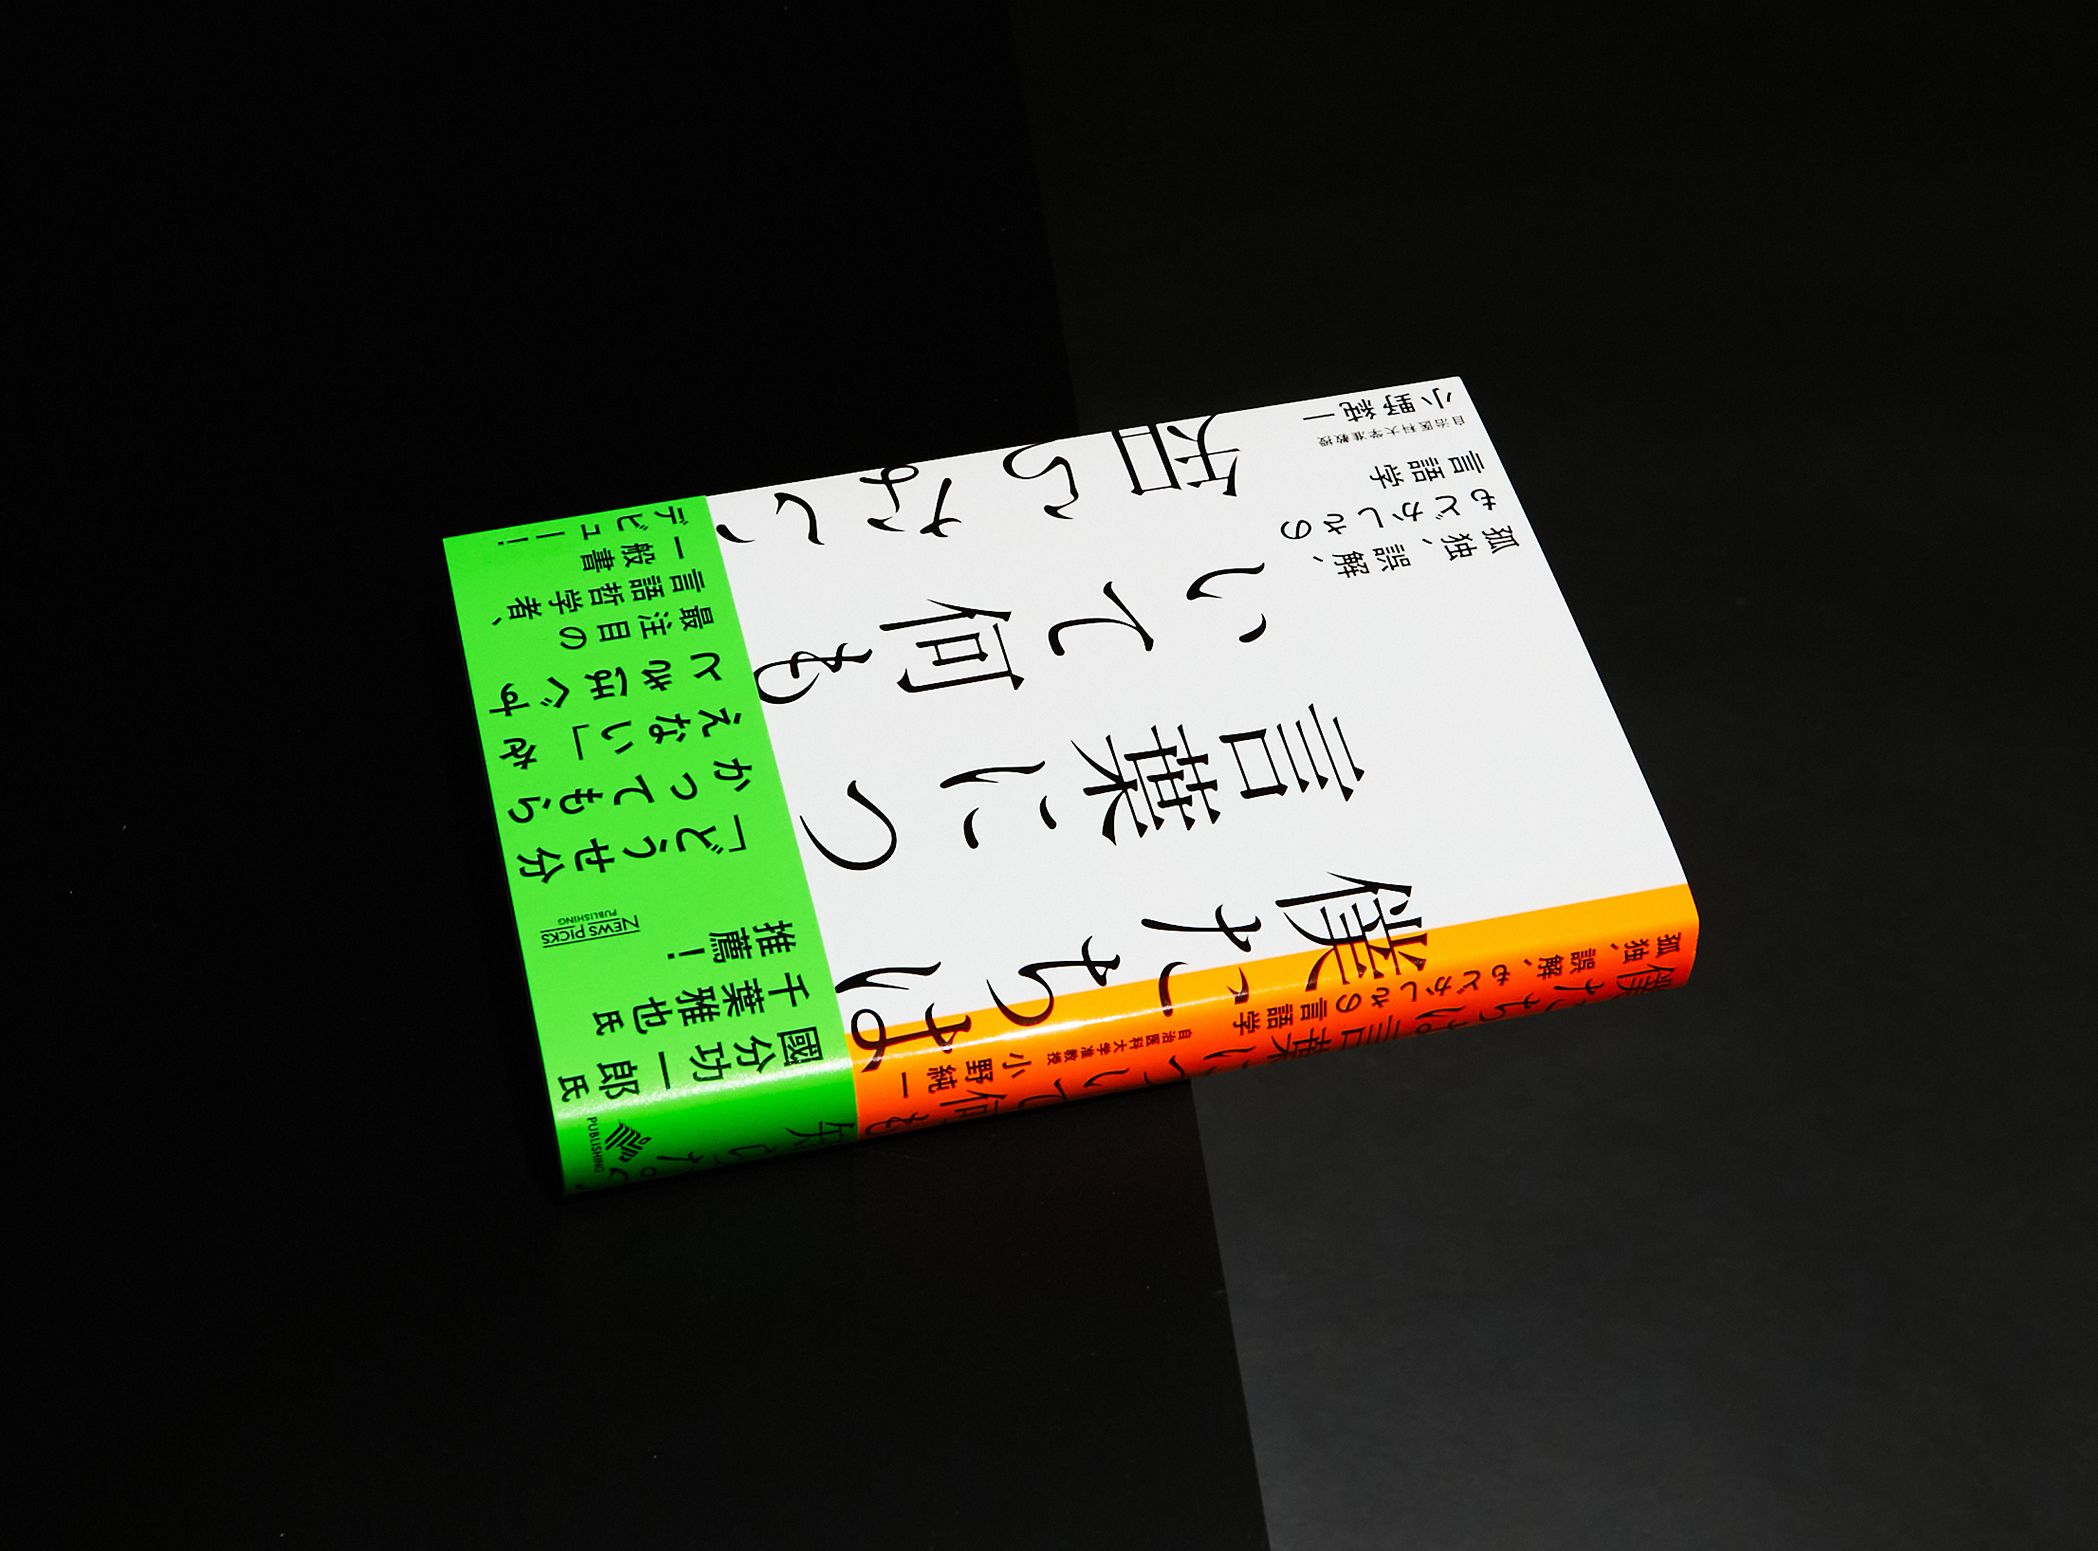 僕たちは
言葉につ
いて何も
知らない
孤独、誤解、
もどかしさの
言語学
自治医科大学准教授
小野純一
國分功一郎氏
千葉雅也氏
推薦！
NEWS PICKS
PUBLISHING
「どうせ分
かってもら
えない」を
ときほぐす
最注目の
言語哲学者、
一般書
デビュー！
孤独、
誤解、もどかしさの言語学
僕たちは言葉について何も知らない
自治医科大学准教授
小野純一
PUBLISHING